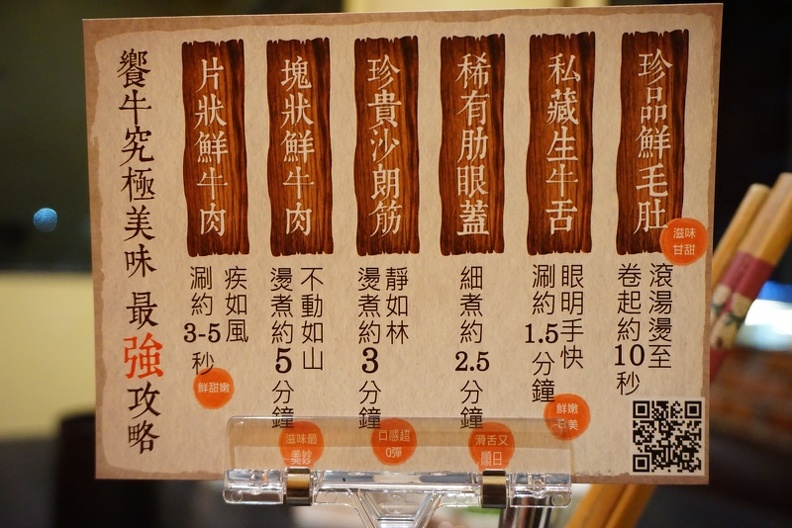 珍品鮮毛肚
滋味
甘甜
滾湯燙至
卷起約10秒
私藏生牛舌
眼明手快
涮約1.5分鐘
鮮嫩
稀有肋眼蓋
細煮約2.5分鐘
滑舌又
順口
珍貴沙朗筋
靜如林
燙煮約3分鐘
口感超
Q彈
塊狀鮮牛肉
不動如山
燙煮約5分鐘
滋味最
美妙
片狀鮮牛肉
疾如風
涮約3-5秒
鮮甜嫩
饗牛究極美味 最強攻略